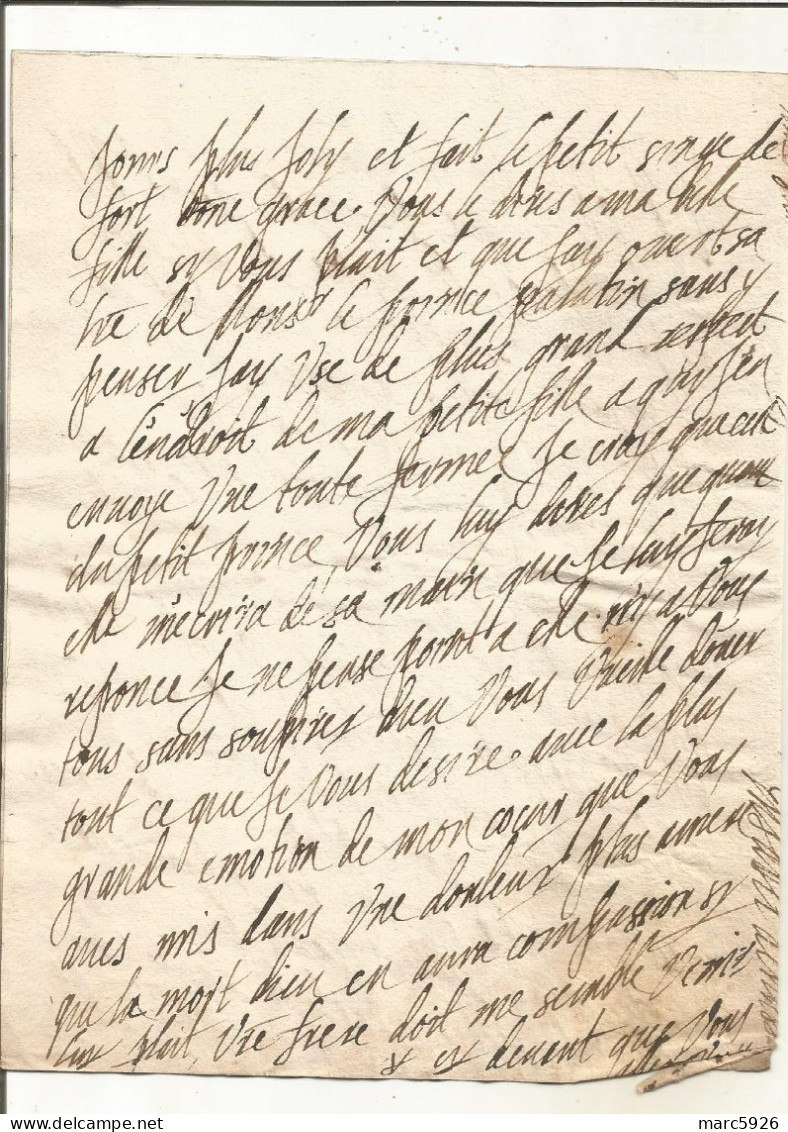 jours plus joly et fait le petit singe de
fort bone grace, Vous le dires a ma belle
fille sy Vous plait et que jay ouvert sa
tre de Monsr le prince palatin sans y
penser, jay Use de plus grand respect
a l'endroit de ma petite fille a quy j'en
envoye Une toute fermee je croy que cest
du petit prince, Vous luy dires que quand
elle m'ecrira de sa main que je luy feray
reponce je ne pense point a elle ny a Vous
tous sans soupirer dieu Vous Veille doner
tout ce que je Vous desire avec la plus
grande emotion de mon coeur que Vous
aves mis dans Une douleur plus amere
que la mort dieu en aura compassion sy
luy plait, Vre frere doit me semble Venir
devent que Vous
marc5926